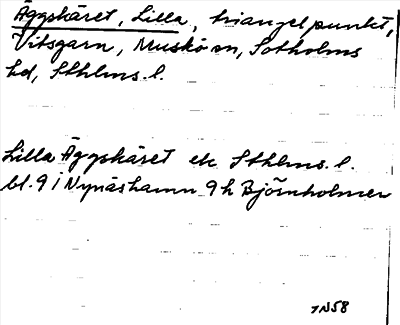 Äggskäret, Lilla, triangelpunkt,
Vitsgarn, Muskö sn, Sotholms
hd, Sthlms. l.
Lilla Äggskäret ek Sthlms. l.
bl. 9 i Nynäshamn 9 h Björnholmen
7N58